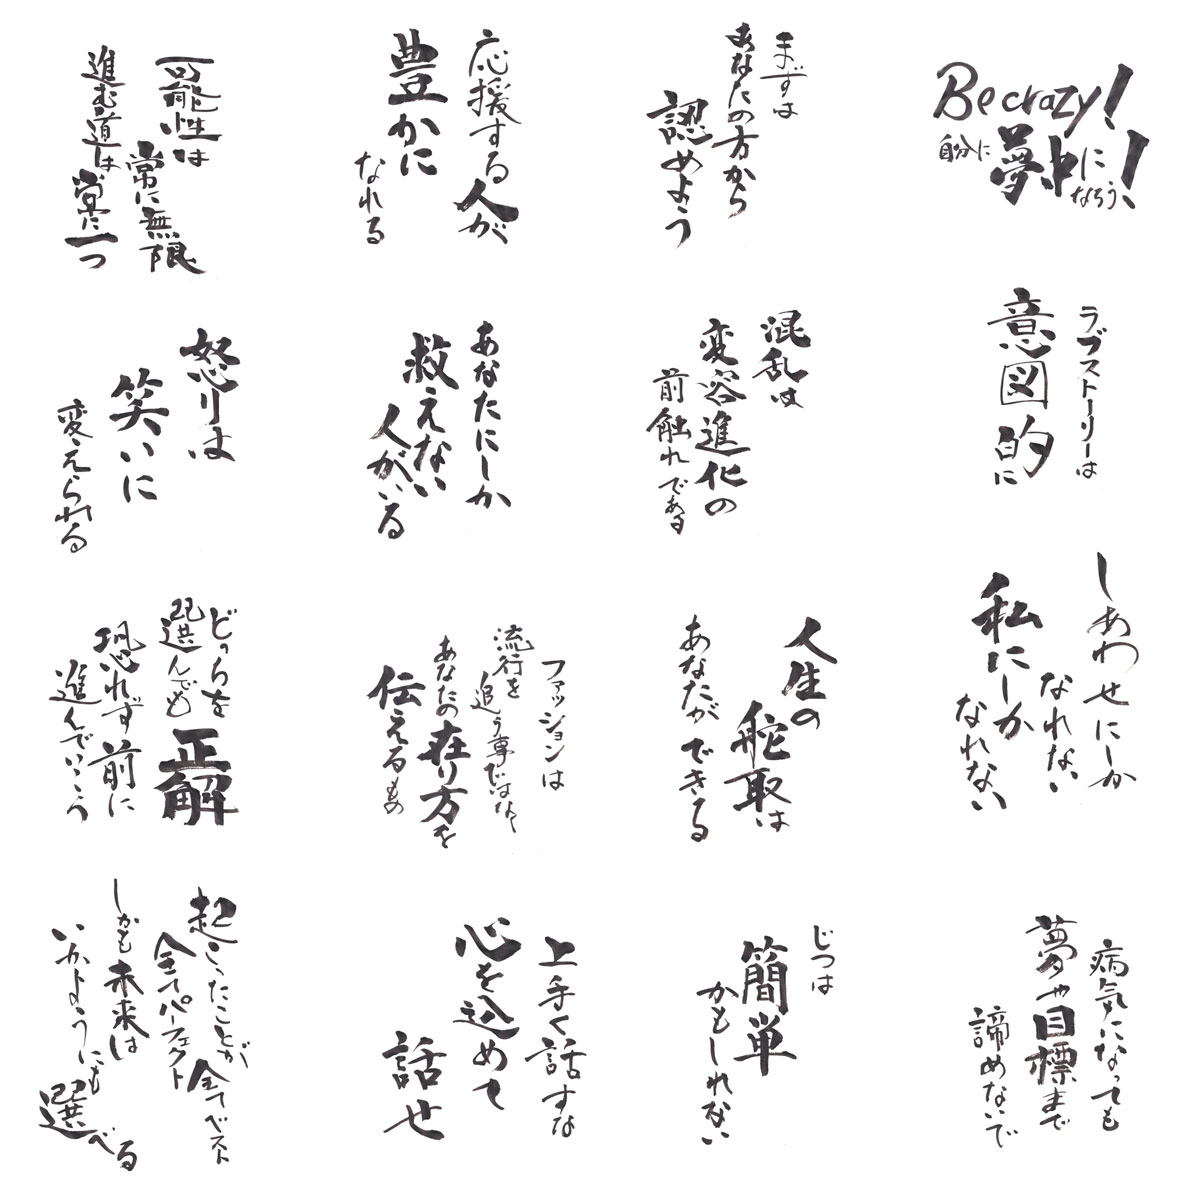 可能性は
常に無限
進む道は
常に一つ
応援する人が
豊かに
なれる
まずは
あなたの方から
認めよう
Be crazy!
自分に夢中になろう!
怒りは
笑いに
変えられる
あなたにしか
救えない
人がいる
混乱は
変容進化の
前触れである
ラブストーリーは
意図的に
どっちを
選んでも
正解
恐れず前に
進んでいこう
ファッションは
流行を
追う事ではなく
あなたの在り方を
伝えるもの
人生の
舵取は
あなたができる
しあわせにしか
なれない
私にしか
なれない
起こったことが
全てベスト
全てパーフェクト
しかも未来は
いかようにも
選べる
上手く話すな
心を込めて
話せ
じつは
簡単
かもしれない
病気になっても
夢や目標まで
諦めないで